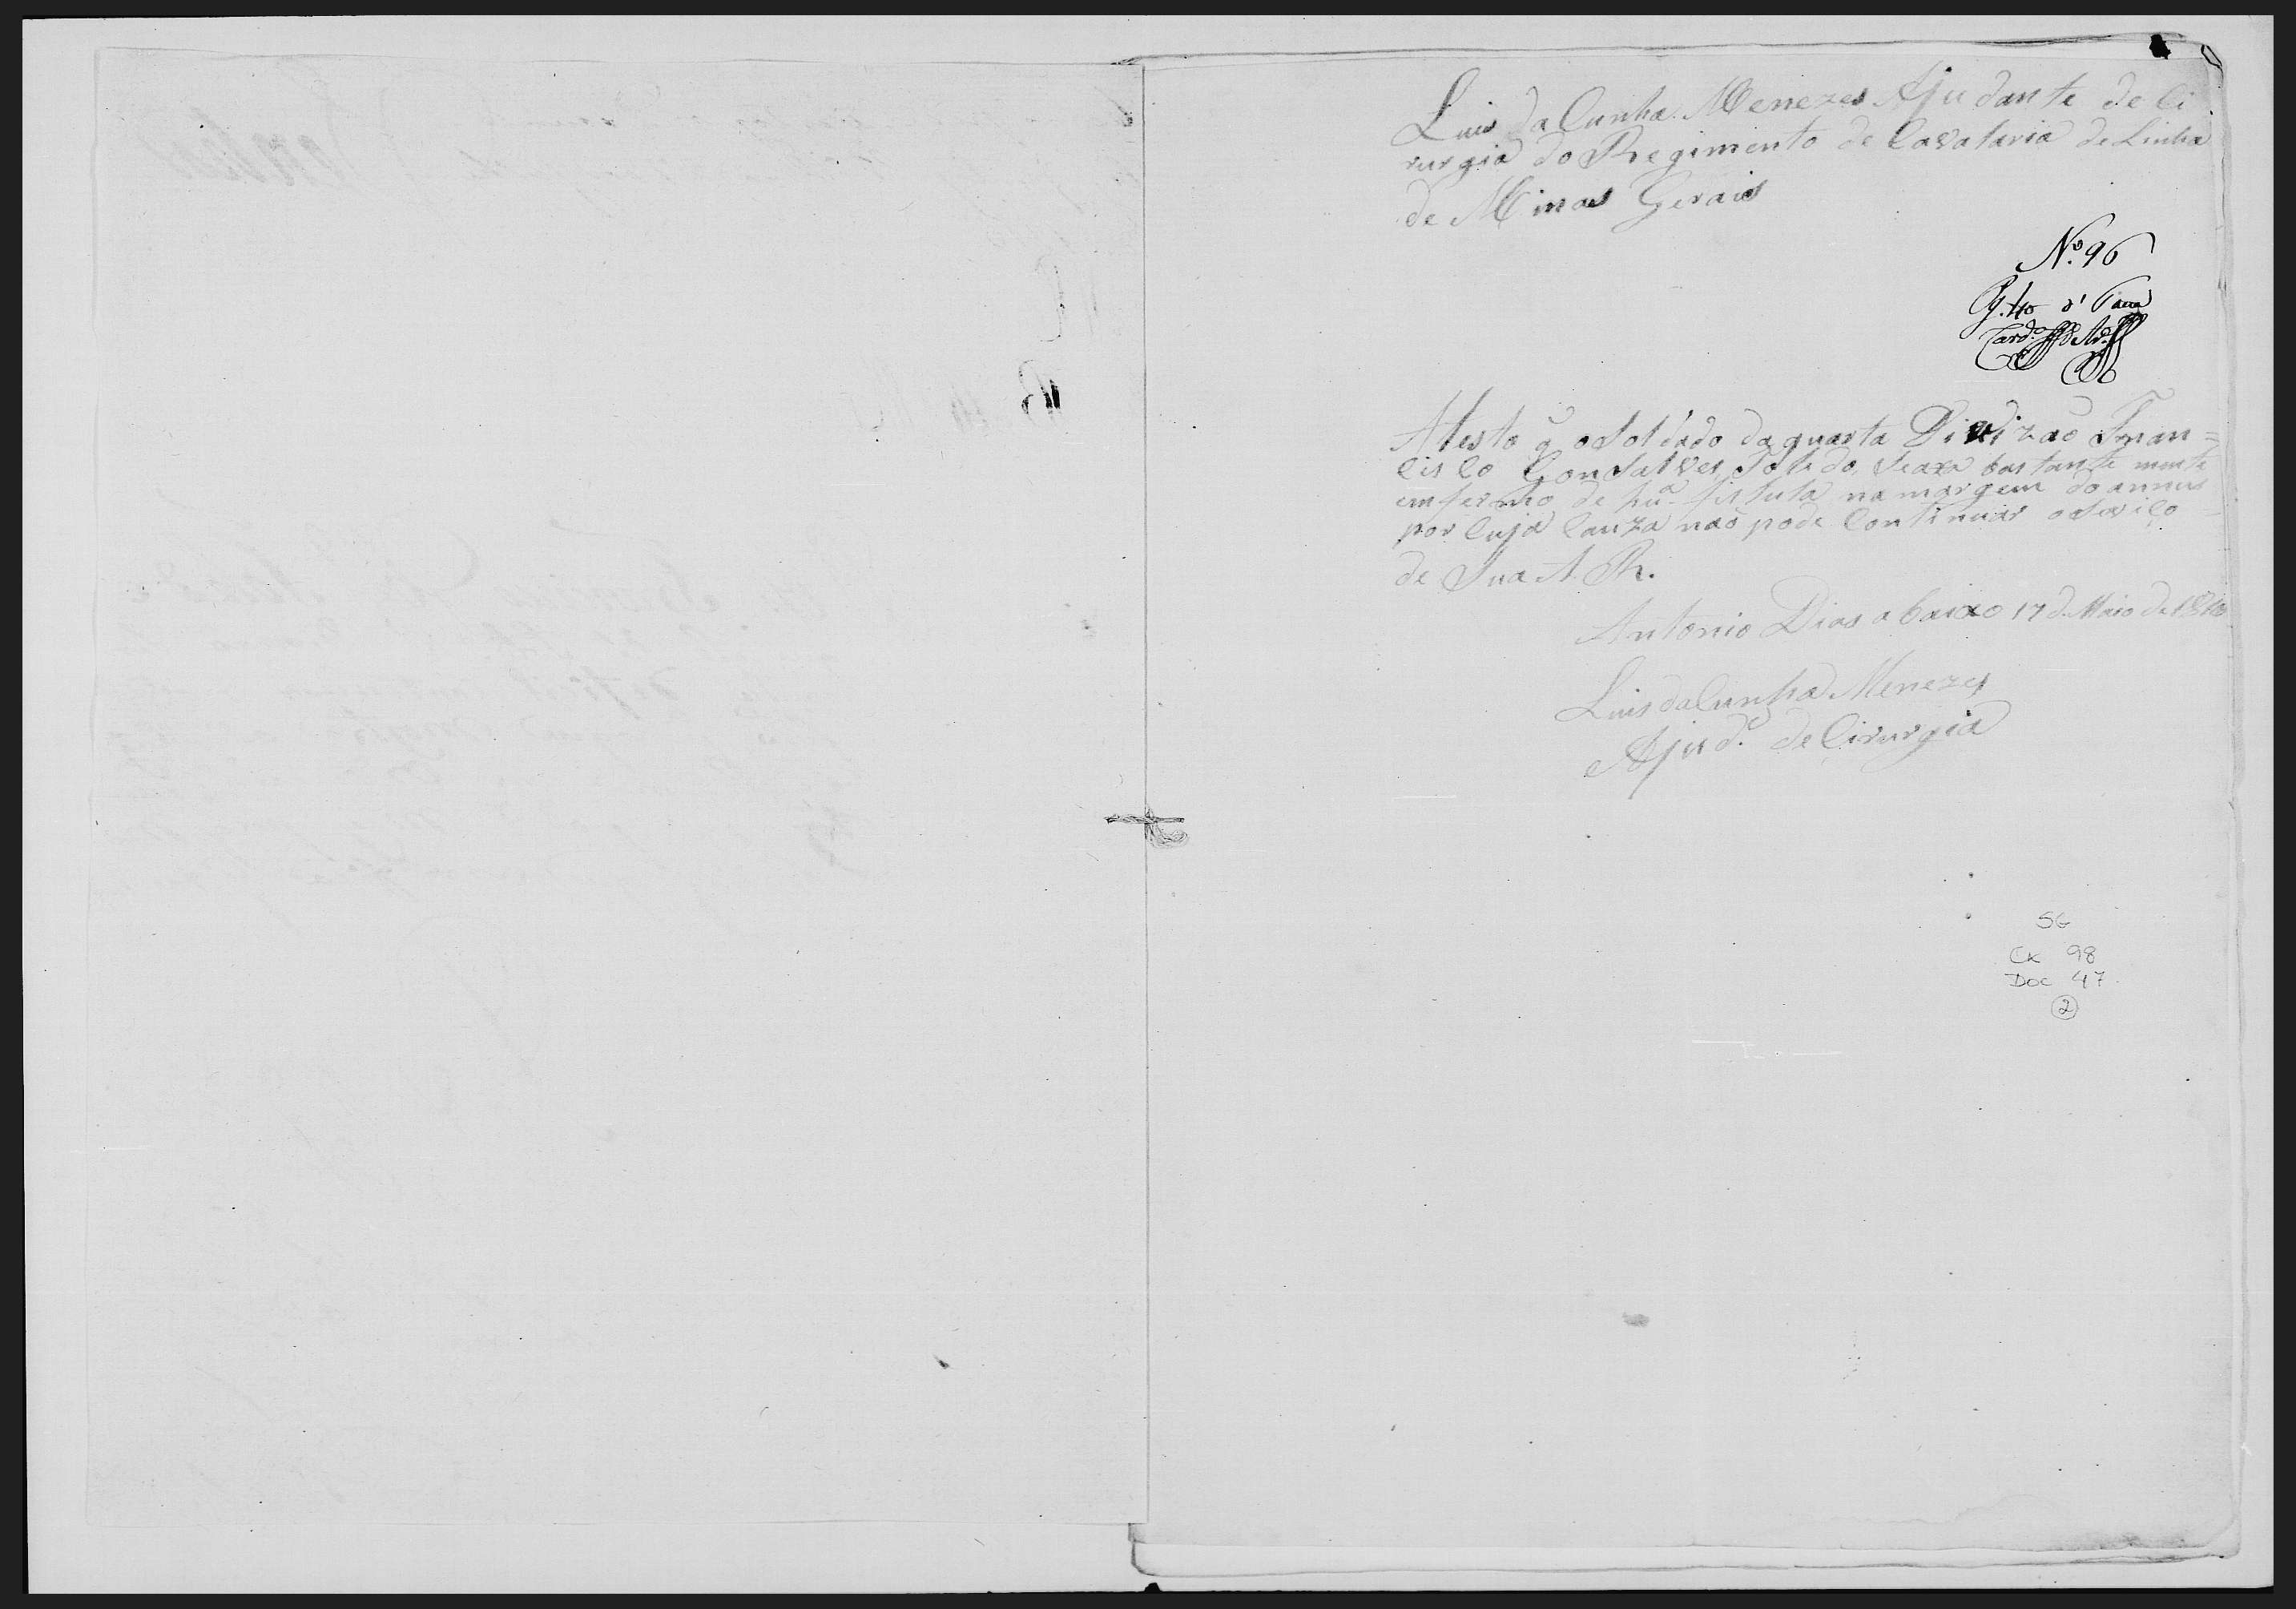 Luis da Cunha Menezes Ajudante de Ci
rurgia do Regimento de Cavalaria de Linha
de Minas Gerais
N.º 96
Atesto q̃ o Soldado da quarta Divizaõ Fran=
cisco Gonsalves Toledo, seaxa bastante mente
emfermo de huã fistula na margem do annus
por cuja cauza naõ pode continuar o Serviço
de Sua A. R.
Antonio Dias abaixo 17 d. Maio de
Luis da Cunha Menezes
Ajud.e de Cirurgia
SG
Cx 98
Doc 47
2